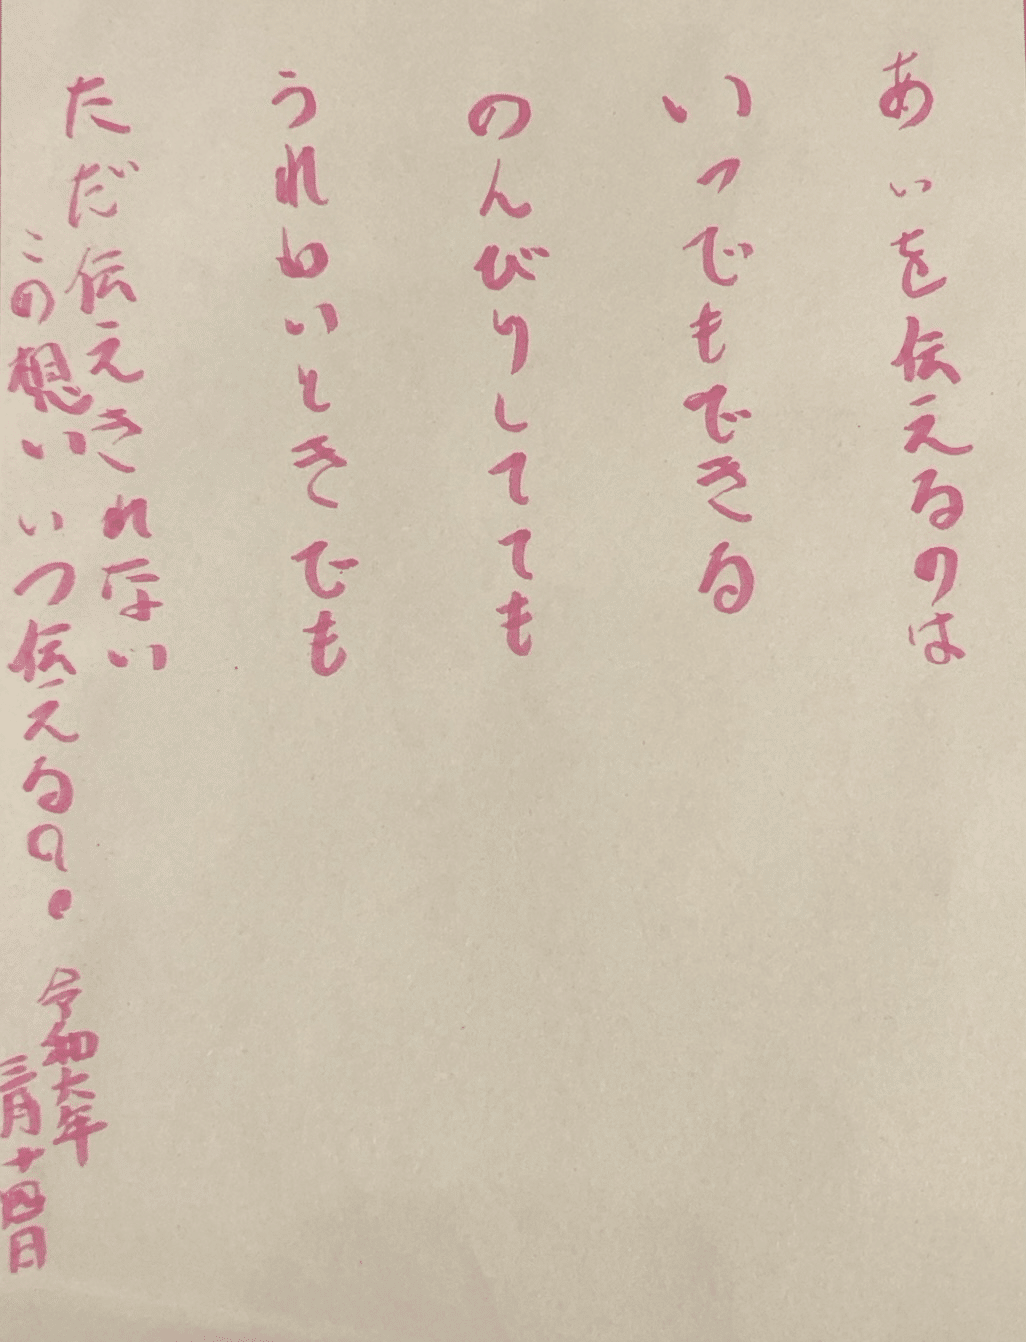 あいを伝えるのは
いつでもできる
のんびりしてても
うれしいときでも
ただ伝えきれない
この想いいつ伝えるの。
令和六年
三月十四日